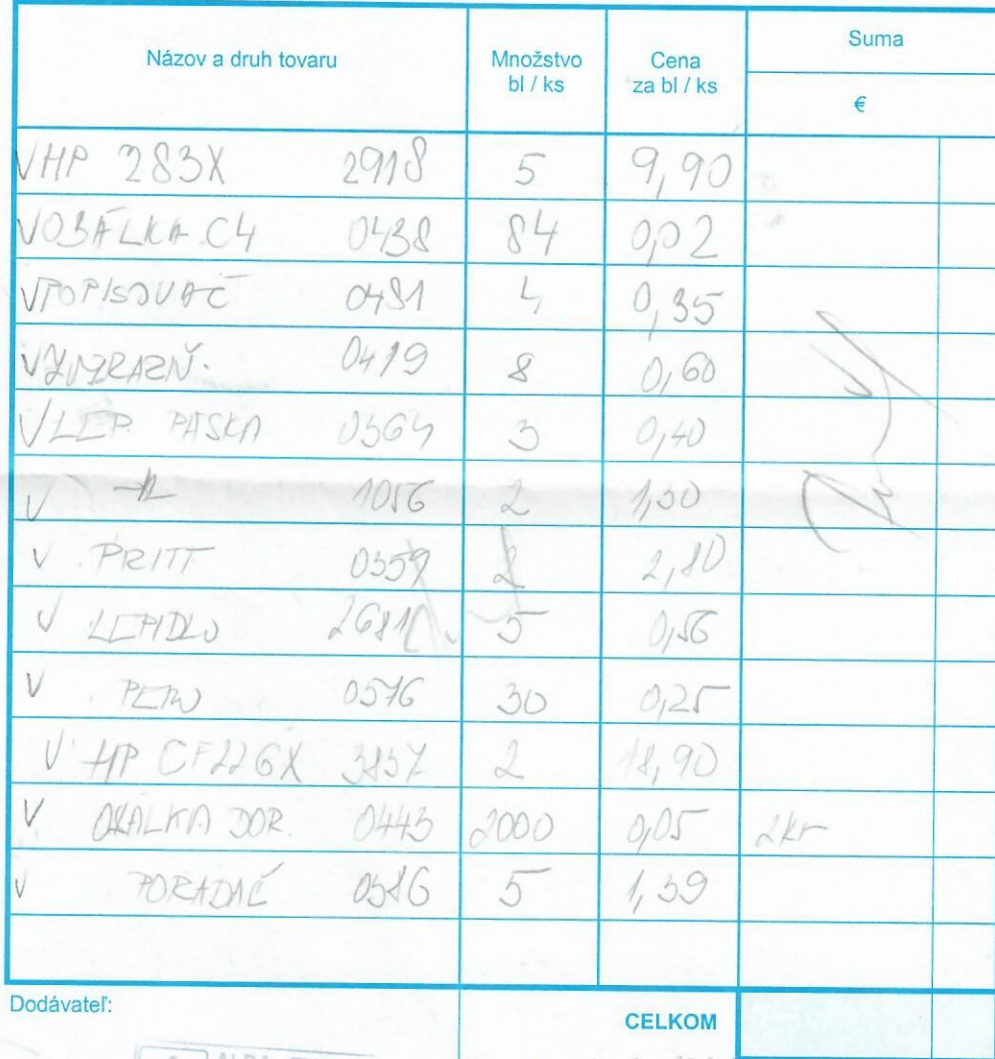 Názov a druh tovaru Množstvo bl / ks Cena za bl / ks Suma €
V HP 283X 2918 5 9,90
V OBÁLKA C4 0438 84 0,02
V POPISOVAČ 0481 4 0,35
V ZVÝRAZŇ. 0419 8 0,60
V LEP. PÁSKA 0364 3 0,40
V 1056 2
V PRITT 0359 2 2,80
V LEPIDLO 2681 5 0,56
V PERO 0576 30 0,25
V HP CF226X 2 18,90
V OBÁLKA DOR. 0443 2000 0,05 2kr
V PORADAČ 0586 5 1,39
Dodávateľ: CELKOM